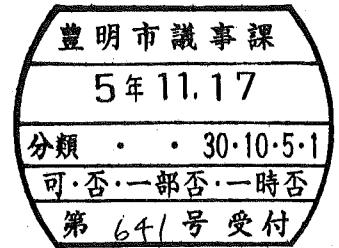 豊明市議事課
5年11.17
分類 ・ ・ 30・10・5・1
可・否・一部否・一時否
第 641 号 受付